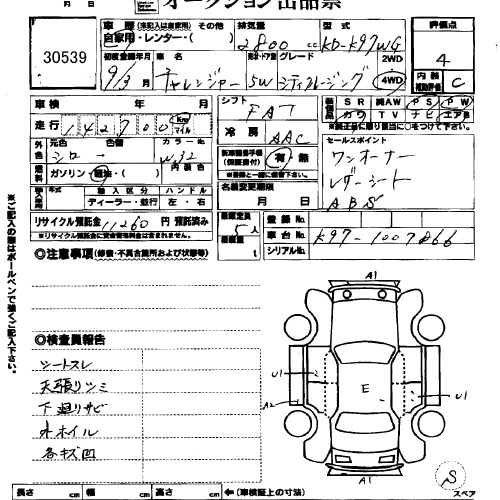 オークション出品票
月 日
30539
車歴 (未記入は自家用) その他
自家用・レンター・( )
排気量
2800 cc
型式
KD-K97WG
評価点
4
初度登録年月
9/3 月
車名
チャレンジャー
ドア
5W
グレード
シティクルージング
2WD
4WD
内装
補助評価
C
車検 年 月
走行 142700 Km マイル
シフト
FAT
冷房
AAC
装備品
SR 純AW PS PW
カワ TV ナビ エアB
外色
元色
シロー
色替
カラーNo.
W32
内装色
燃料
ガソリン・軽油・( )
(保証書付)
有・無
セールスポイント
ワンオーナー
レザーシート
ABS
輸入車
年式
輸入区分
ディーラー・並行
ハンドル
左・右
名義変更期限
月 日
リサイクル預託金 11260 円 預託済み
乗車定員
5人
積載量
t
登録No.
車台No. K97-1007866
シリアルNo.
◎注意事項(修復・不具合箇所および状態等)
※ご記入の際はボールペンで強くご記入下さい。
◎検査員報告
シートスレ
天張リシミ
下廻リサビ
ホイル
各キズ凹
A1
U1
2
E
U1
A2
A1
S
スペア
長さ cm 幅 cm 高さ cm ←(車検証上の寸法)